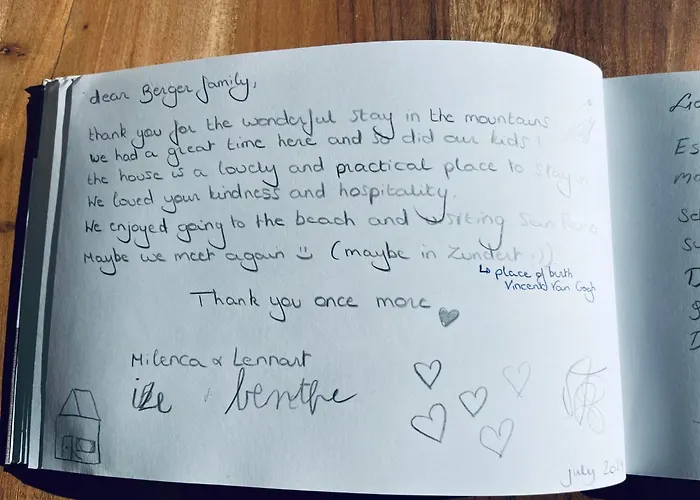 dear Berger family,
thank you for the wonderful stay in the mountains
we had a great time here and so did our kids!
the house is a lovely and practical place to stay in
We loved your kindness and hospitality.
We enjoyed going to the beach and visiting San Remo
Maybe we meet again :) (maybe in Zundert :))
↳ place of birth
Vincent Van Gogh
Thank you once more ♥
Milenca & Lennart
benthe
july
Es